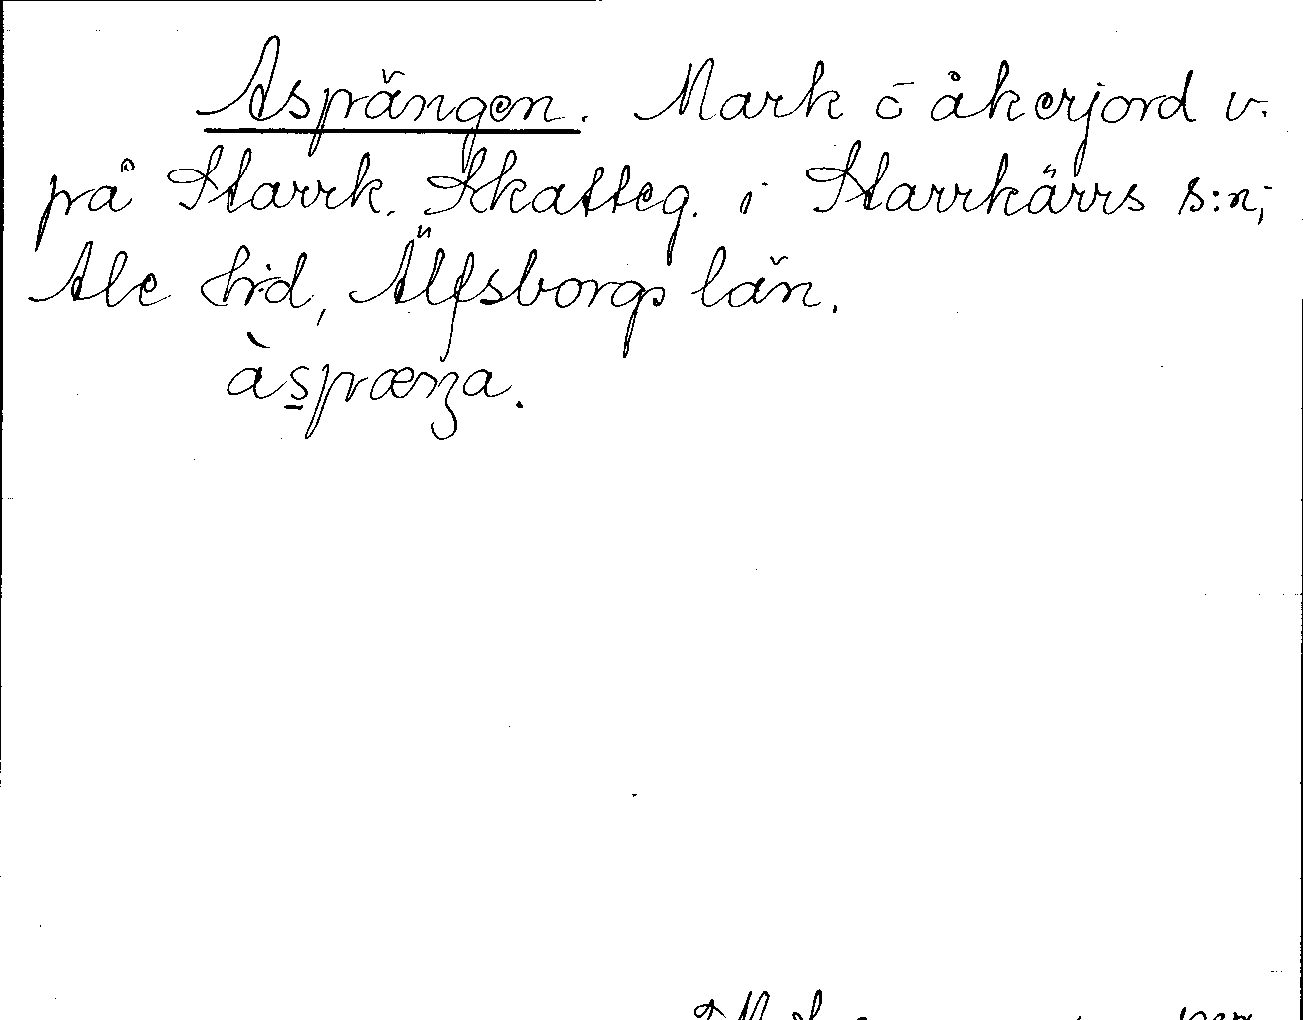 Asprängen. Mark o åkerjord v.
på Starrk. Skatteg. i Starrkärrs s:n;
Ale h:d, Älfsborgs län.
àspræŋa.